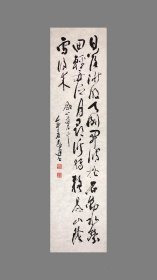 日落沙明天倒開波搖石動水縈
迴輕舟泛月尋溪轉疑是山陰
雪後來